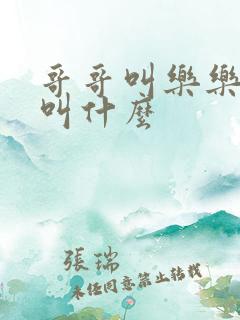 哥哥叫樂樂
叫什麼
張瑞
未經同意禁止轉載